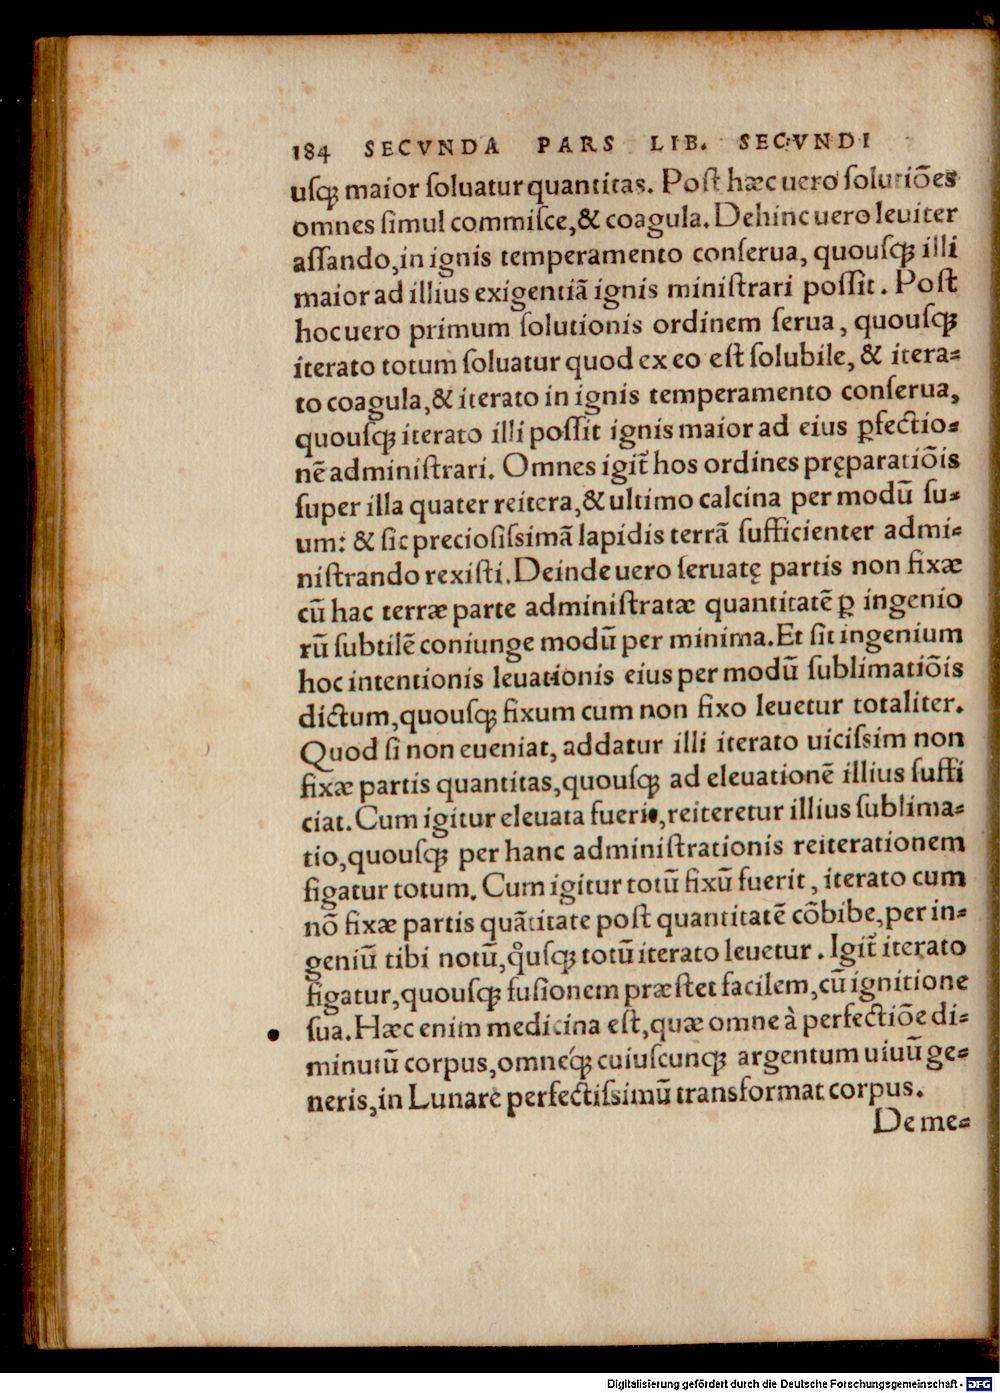 184 SECVNDA PARS LIB. SECVNDI
uſqꝫ maior ſoluatur quantitas. Poſt hæc uero ſolutiões
omnes ſimul commiſce,& coagula. Dehinc uero leuiter
aſſando,in ignis temperamento conſerua, quouſqꝫ illi
maior ad illius exigentiã ignis miniſtrari poſſit. Poſt
hoc uero primum ſolutionis ordinem ſerua, quouſqꝫ
iterato totum ſoluatur quod ex eo eſt ſolubile, & itera=
to coagula,& iterato in ignis temperamento conſerua,
quouſqꝫ iterato illi poſſit ignis maior ad eius ꝑfectio=
nẽ adminiſtrari. Omnes igit̃ hos ordines pręparatiõis
ſuper illa quater reitera,& ultimo calcina per modũ ſu=
um: & ſic precioſiſsimã lapidis terrã ſufficienter admi=
niſtrando rexiſti. Deinde uero ſeruatę partis non fixæ
cũ hac terræ parte adminiſtratæ quantitatẽ ꝑ ingenio
rũ ſubtilẽ coniunge modũ per minima. Et ſit ingenium
hoc intentionis leuationis eius per modũ ſublimatiõis
dictum,quouſqꝫ fixum cum non fixo leuetur totaliter.
Quod ſi non eueniat, addatur illi iterato uiciſsim non
fixæ partis quantitas,quouſqꝫ ad eleuationẽ illius ſuffi
ciat. Cum igitur eleuata fuerit,reiteretur illius ſublima=
tio,quouſqꝫ per hanc adminiſtrationis reiterationem
figatur totum. Cum igitur totũ fixũ fuerit, iterato cum
nõ fixæ partis quãtitate poſt quantitatẽ cõbibe,per in=
geniũ tibi notũ,qͦuſqꝫ totũ iterato leuetur. Igit̃ iterato
figatur,quouſqꝫ fuſionem præſtet facilem,cũ ignitione
ſua. Hæc enim medicina eſt,quæ omne à perfectiõe di=
minutũ corpus,omneq́ꝫ cuiuſcunqꝫ argentum uiuũ ge=
neris,in Lunare perfectiſsimũ transformat corpus.
De me=
Digitalisierung gefördert durch die Deutsche Forschungsgemeinschaft - DFG